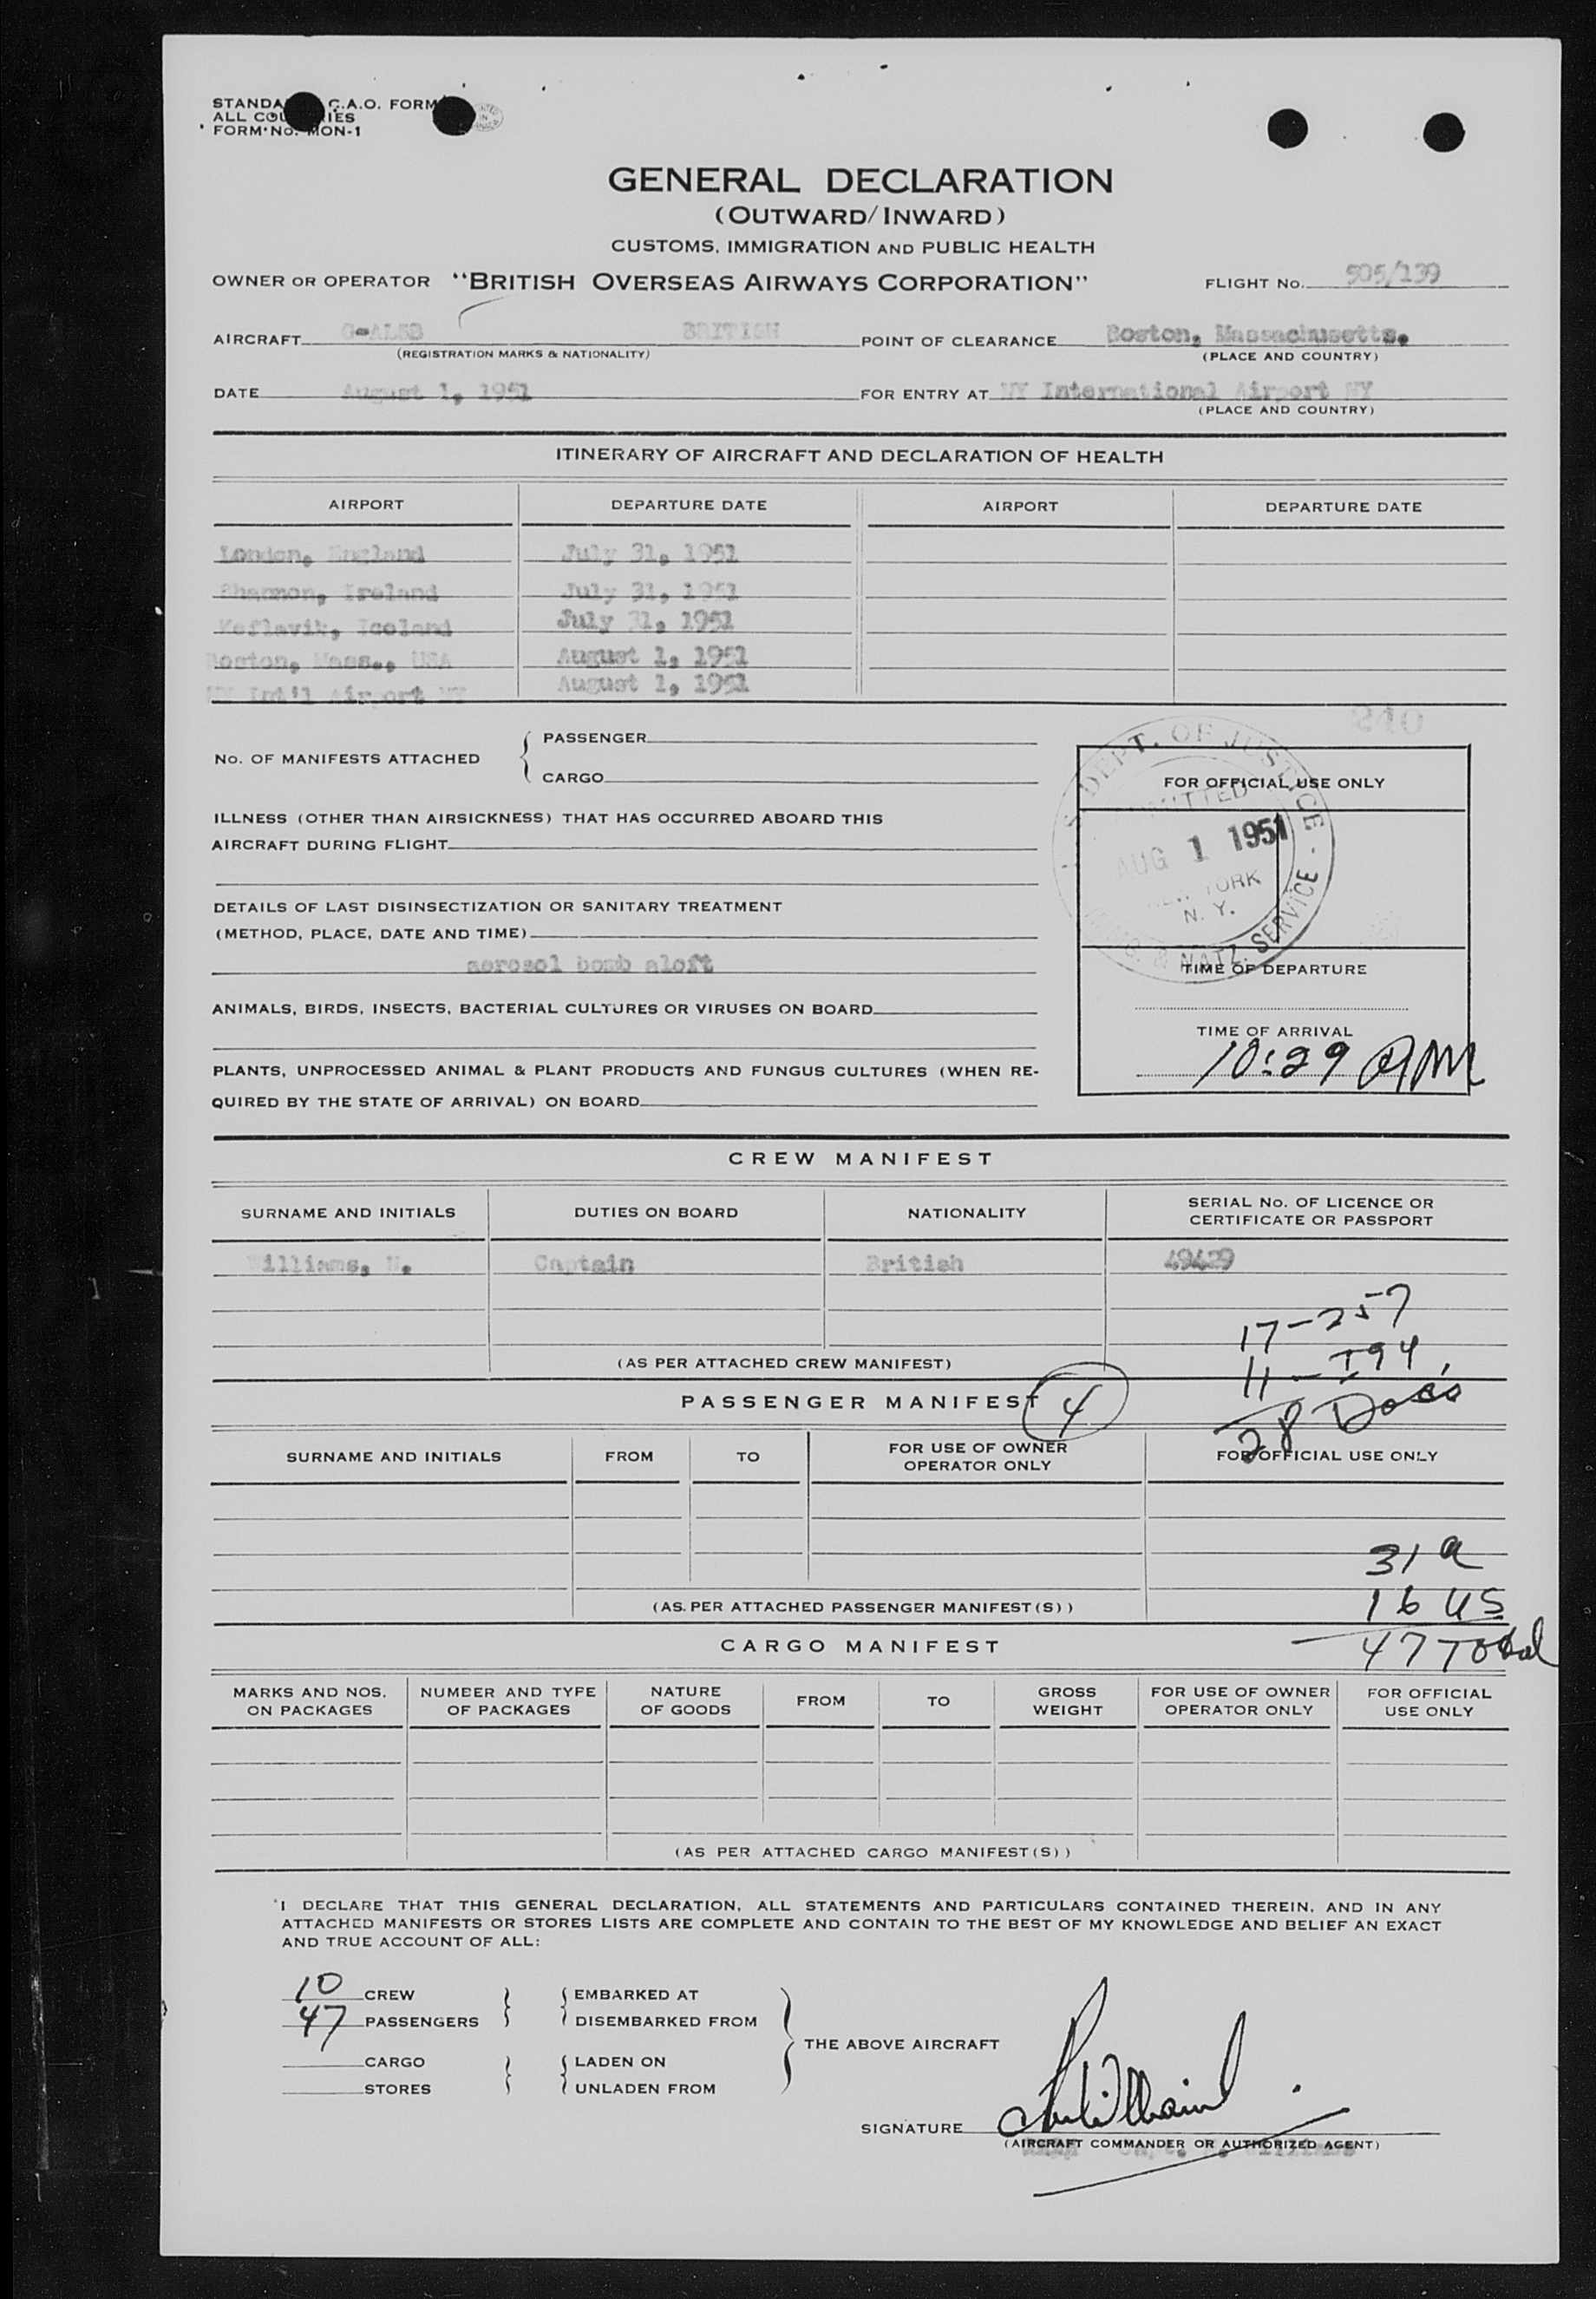 STANDA C.A.O. FORM
ALL COU RIES
FORM No. MON-1
GENERAL DECLARATION
(OUTWARD/INWARD)
CUSTOMS, IMMIGRATION AND PUBLIC HEALTH
OWNER OR OPERATOR "BRITISH OVERSEAS AIRWAYS CORPORATION" FLIGHT No. 505/139
AIRCRAFT BRITISH POINT OF CLEARANCE Boston, Massachusetts.
(REGISTRATION MARKS & NATIONALITY) (PLACE AND COUNTRY)
DATE August 1, 1951 FOR ENTRY AT NY International Airport NY
(PLACE AND COUNTRY)
ITINERARY OF AIRCRAFT AND DECLARATION OF HEALTH
AIRPORT DEPARTURE DATE AIRPORT DEPARTURE DATE
London, England July 31, 1951
Shannon, Ireland July 31, 1951
Keflavik, Iceland July 31, 1951
Boston, Mass., USA August 1, 1951
NY Int'l Airport NY August 1, 1951
240
No. OF MANIFESTS ATTACHED { PASSENGER
CARGO
FOR OFFICIAL USE ONLY
DEPT. OF JUSTICE
ADMITTED
AUG 1 1951
NEW YORK
N. Y.
& NATZ. SERVICE
ILLNESS (OTHER THAN AIRSICKNESS) THAT HAS OCCURRED ABOARD THIS
AIRCRAFT DURING FLIGHT
DETAILS OF LAST DISINSECTIZATION OR SANITARY TREATMENT
(METHOD, PLACE, DATE AND TIME)
aerosol bomb aloft
TIME OF DEPARTURE
ANIMALS, BIRDS, INSECTS, BACTERIAL CULTURES OR VIRUSES ON BOARD
TIME OF ARRIVAL
10:29 AM
PLANTS, UNPROCESSED ANIMAL & PLANT PRODUCTS AND FUNGUS CULTURES (WHEN RE-
QUIRED BY THE STATE OF ARRIVAL) ON BOARD
CREW MANIFEST
SURNAME AND INITIALS DUTIES ON BOARD NATIONALITY SERIAL No. OF LICENCE OR
CERTIFICATE OR PASSPORT
Williams, Captain British 49429
17-257
(AS PER ATTACHED CREW MANIFEST) 11-I94
PASSENGER MANIFEST 4 28 Docs
SURNAME AND INITIALS FROM TO FOR USE OF OWNER
OPERATOR ONLY FOR OFFICIAL USE ONLY
31 a
(AS PER ATTACHED PASSENGER MANIFEST(S)) 16 US
CARGO MANIFEST 47 Total
MARKS AND NOS.
ON PACKAGES NUMBER AND TYPE
OF PACKAGES NATURE
OF GOODS FROM TO GROSS
WEIGHT FOR USE OF OWNER
OPERATOR ONLY FOR OFFICIAL
USE ONLY
(AS PER ATTACHED CARGO MANIFEST(S))
I DECLARE THAT THIS GENERAL DECLARATION, ALL STATEMENTS AND PARTICULARS CONTAINED THEREIN, AND IN ANY
ATTACHED MANIFESTS OR STORES LISTS ARE COMPLETE AND CONTAIN TO THE BEST OF MY KNOWLEDGE AND BELIEF AN EXACT
AND TRUE ACCOUNT OF ALL:
10 CREW } { EMBARKED AT
47 PASSENGERS } { DISEMBARKED FROM
THE ABOVE AIRCRAFT
CARGO } { LADEN ON
STORES } { UNLADEN FROM
SIGNATURE
(AIRCRAFT COMMANDER OR AUTHORIZED AGENT)